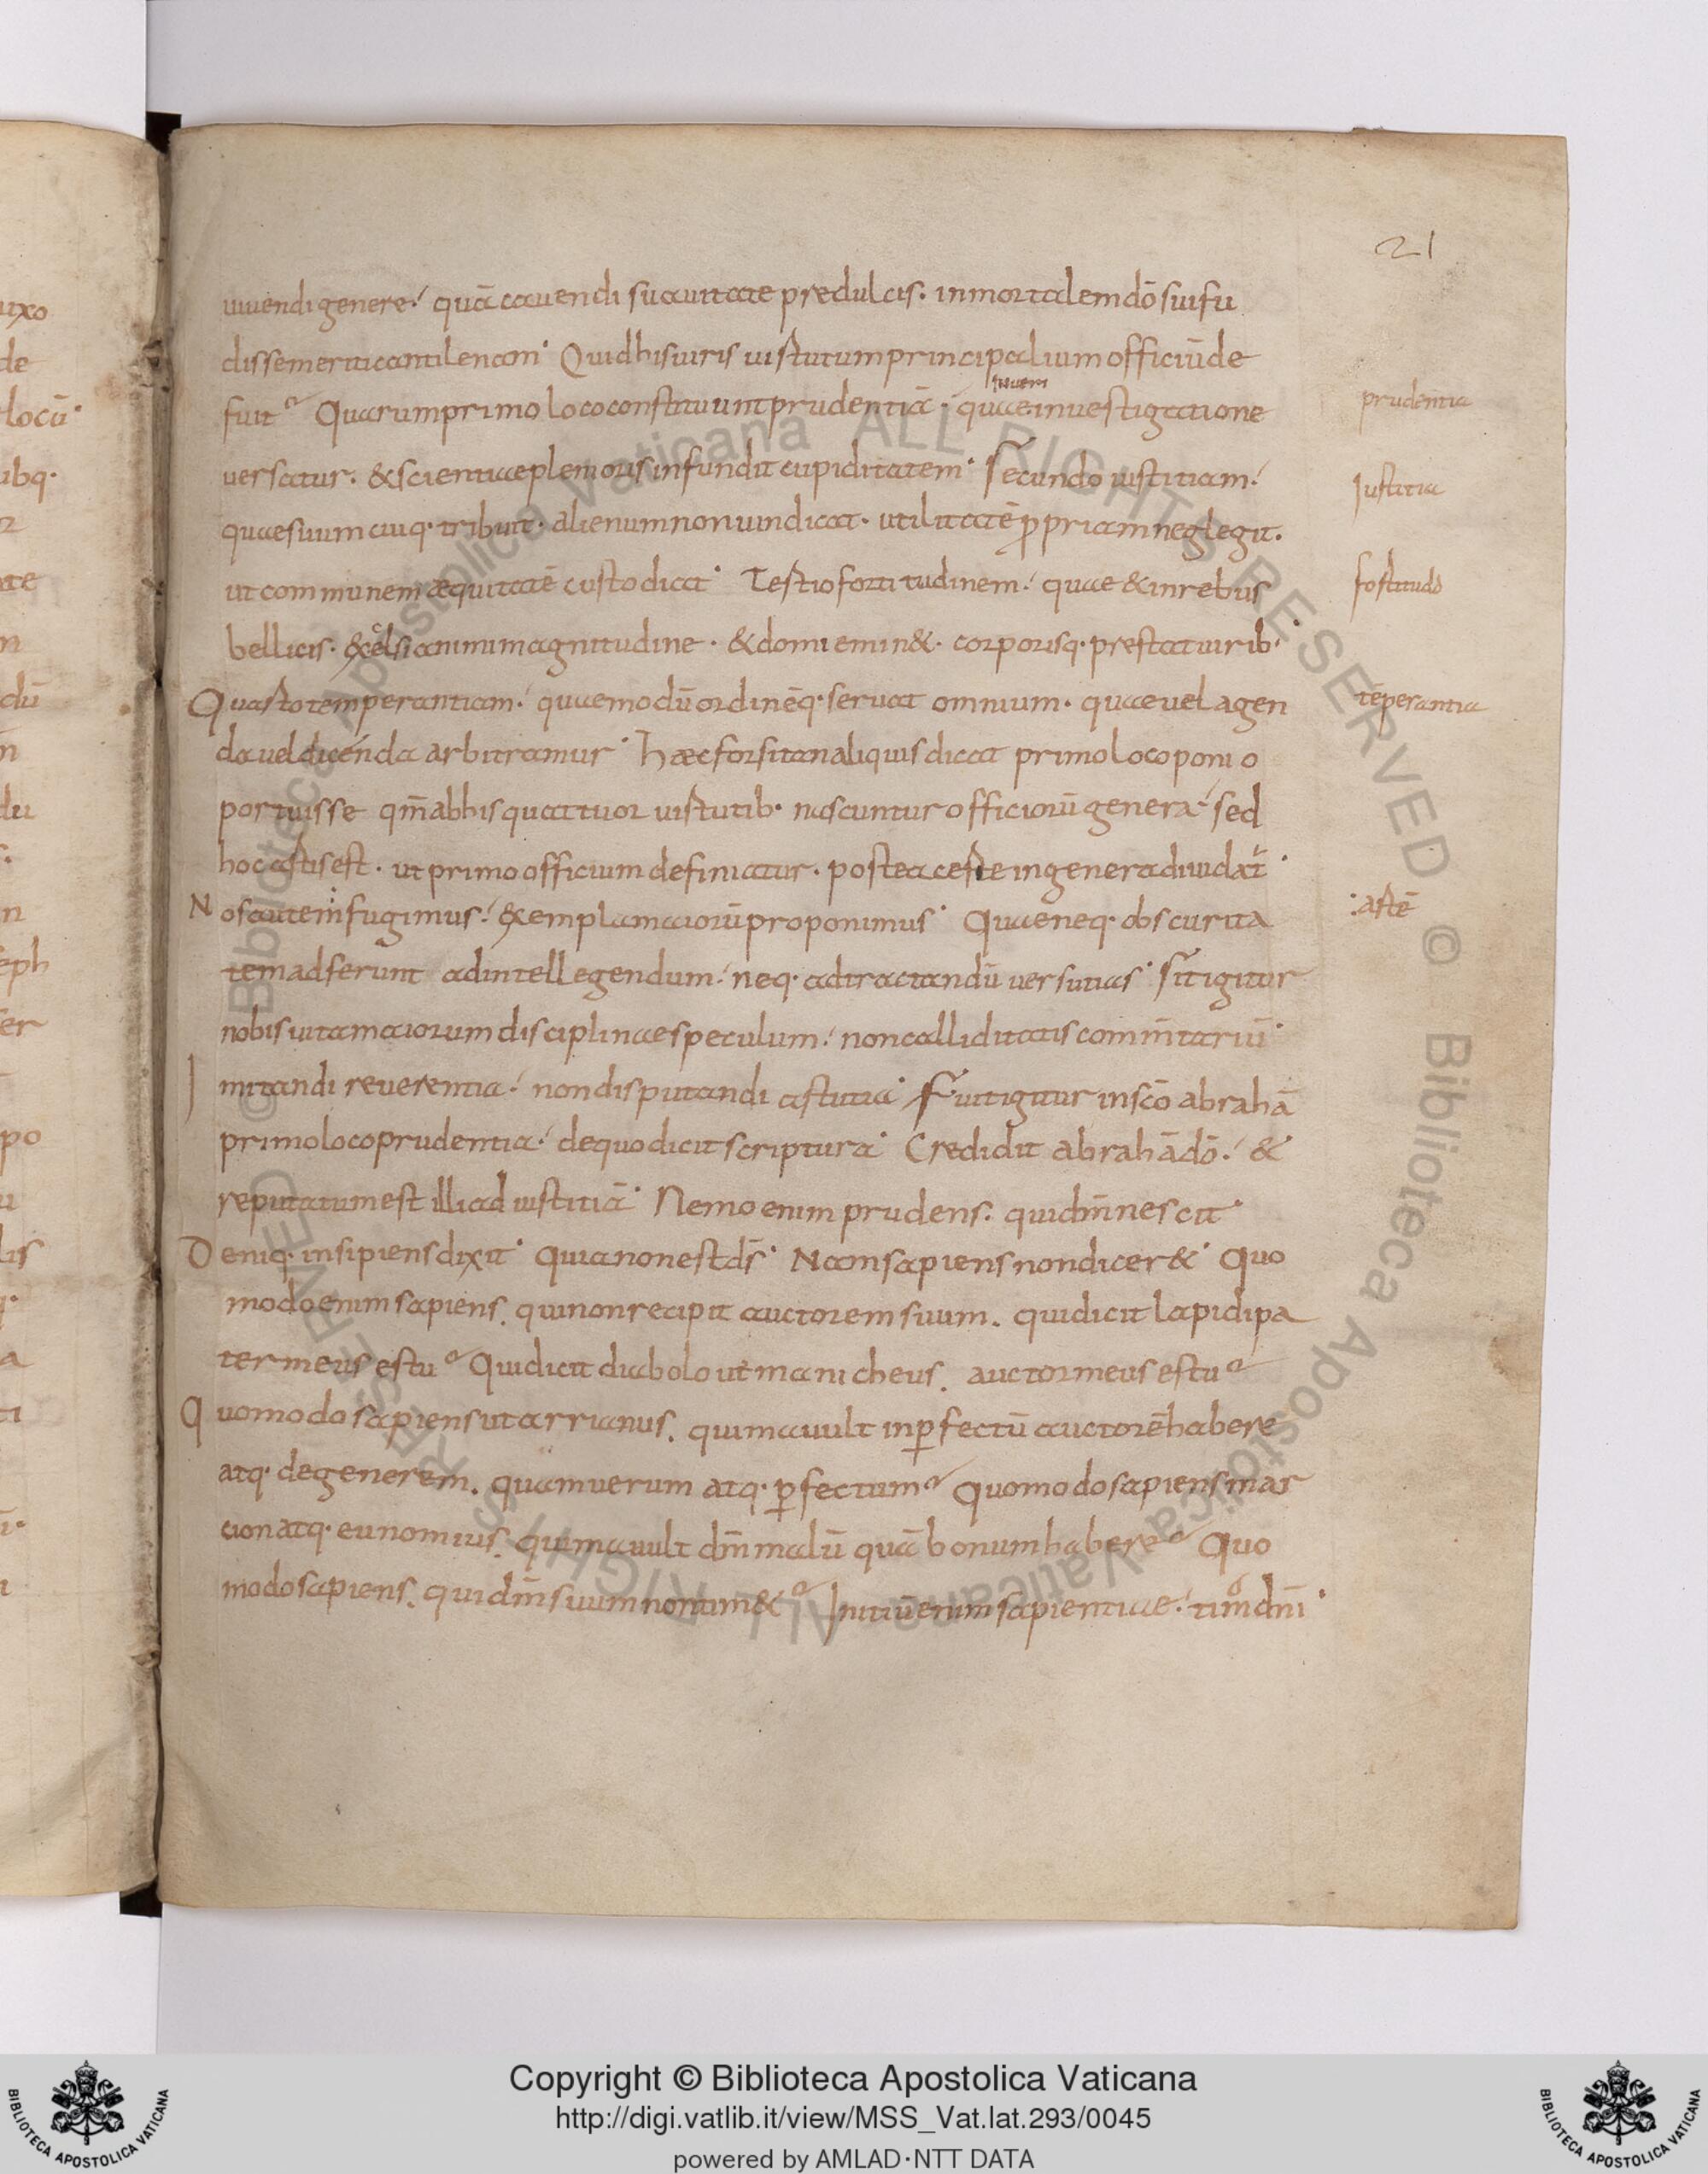 21
uiuendi genere. quā cauendi suauitate predulcis. inmortalem dō sui fu
dissemeriticantilenam. Quid his uiris uirtutum principalium officiū de
fuit? Quarum primo loco constituunt prudentiā. quae in uestigatione
inueri
prudentia
uersatur. & scientiae plenioris infundit cupiditatem. Secundo iustitiam.
Iustitia
quae suum cuiq. tribuit. alienum non uindicat. utilitatē ꝓpriam neglegit.
ut communem æquitatē custodiat. Tertio fortitudinem. quae & in rebus
fortitudo
bellicis. & excelsi animi magnitudine. & domi emin&. corporisq. prestat uirib.
Quarto temperantiam. quae modū ordinēq. seruat omnium. quae uel agen
tēperantia
da uel dicenda arbitramur. Hæc forsitan aliquis dicat primo loco poni o
portuisse qm̄ ab his quattuor uirtutib. nascuntur officiorū genera. sed
hoc artis est. ut primo officium definiatur. postea certe in genera diuidat.
Nos autem fugimus. exempla maiorū proponimus. Quae neq. obscurita
:artē
tem adferunt ad intellegendum. neq. ad tractandū uersutias. Sit igitur
nobis uita maiorum disciplinae speculum. non calliditatis comm̄tariū.
Imitandi reuerentia. non disputandi astutia. Fuit igitur in scō abrahā
primo loco prudentia. de quo dicit scriptura. Credidit abrahā dō. &
reputatum est illi ad iustitiā. Nemo enim prudens. qui dm̄ nescit.
Deniq. insipiens dixit. quia non est ds̄. Nam sapiens non dicer&. Quo
modo enim sapiens. qui non recipit auctorem suum. qui dicit lapidi pa
ter meus es tu? Qui dicit diabolo ut manicheus. auctor meus es tu?
Quomodo sapiens ut arrianus. qui mauult inꝑfectū auctorē habere
atq. degenerem. quam uerum atq. ꝑfectum? Quomodo sapiens mar
cion atq. eunomius. qui mauult dm̄ malū quā bonum habere? Quo
modo sapiens. qui dm̄ suum non tim&? Initiū enim sapientiae. timor dn̄i.
uixo
de
locū.
ibq.
te
n
dū
du
n
eph
er
po
u
lis
q.
a
ti
Copyright © Biblioteca Apostolica Vaticana
http://digi.vatlib.it/view/MSS_Vat.lat.293/0045
powered by AMLAD·NTT DATA
BIBLIOTECA APOSTOLICA VATICANA
BIBLIOTECA APOSTOLICA VATICANA
© Biblioteca Apostolica Vaticana ALL RIGHTS RESERVED © Biblioteca Apostolica Vaticana ALL RIGHTS RESERVED